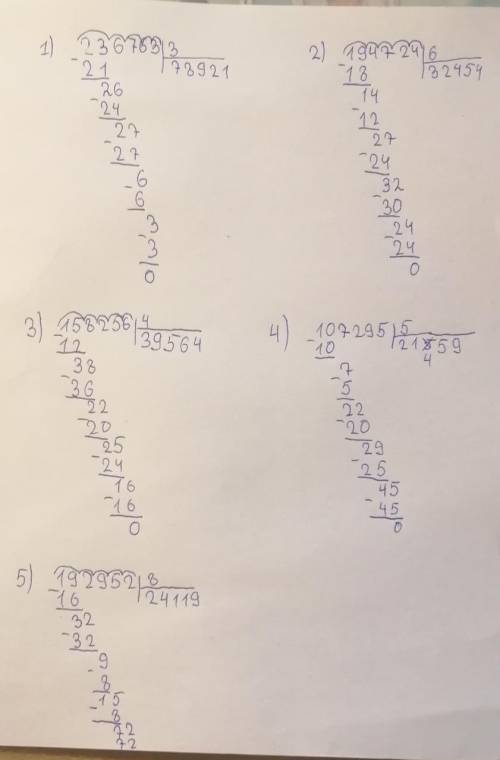 1) 236763 3
- 21 78921
26
- 24
27
- 27
6
- 6
3
- 3
0
2) 194724 6
- 18 32454
14
- 12
27
- 24
32
- 30
24
- 24
0
3) 158256 4
- 12 39564
38
- 36
22
- 20
25
- 24
16
- 16
0
4) 107295 5
- 10 21859
4
7
- 5
22
- 20
29
- 25
45
- 45
0
5) 192952 8
- 16 24119
32
- 32
9
- 8
15
- 8
72
72